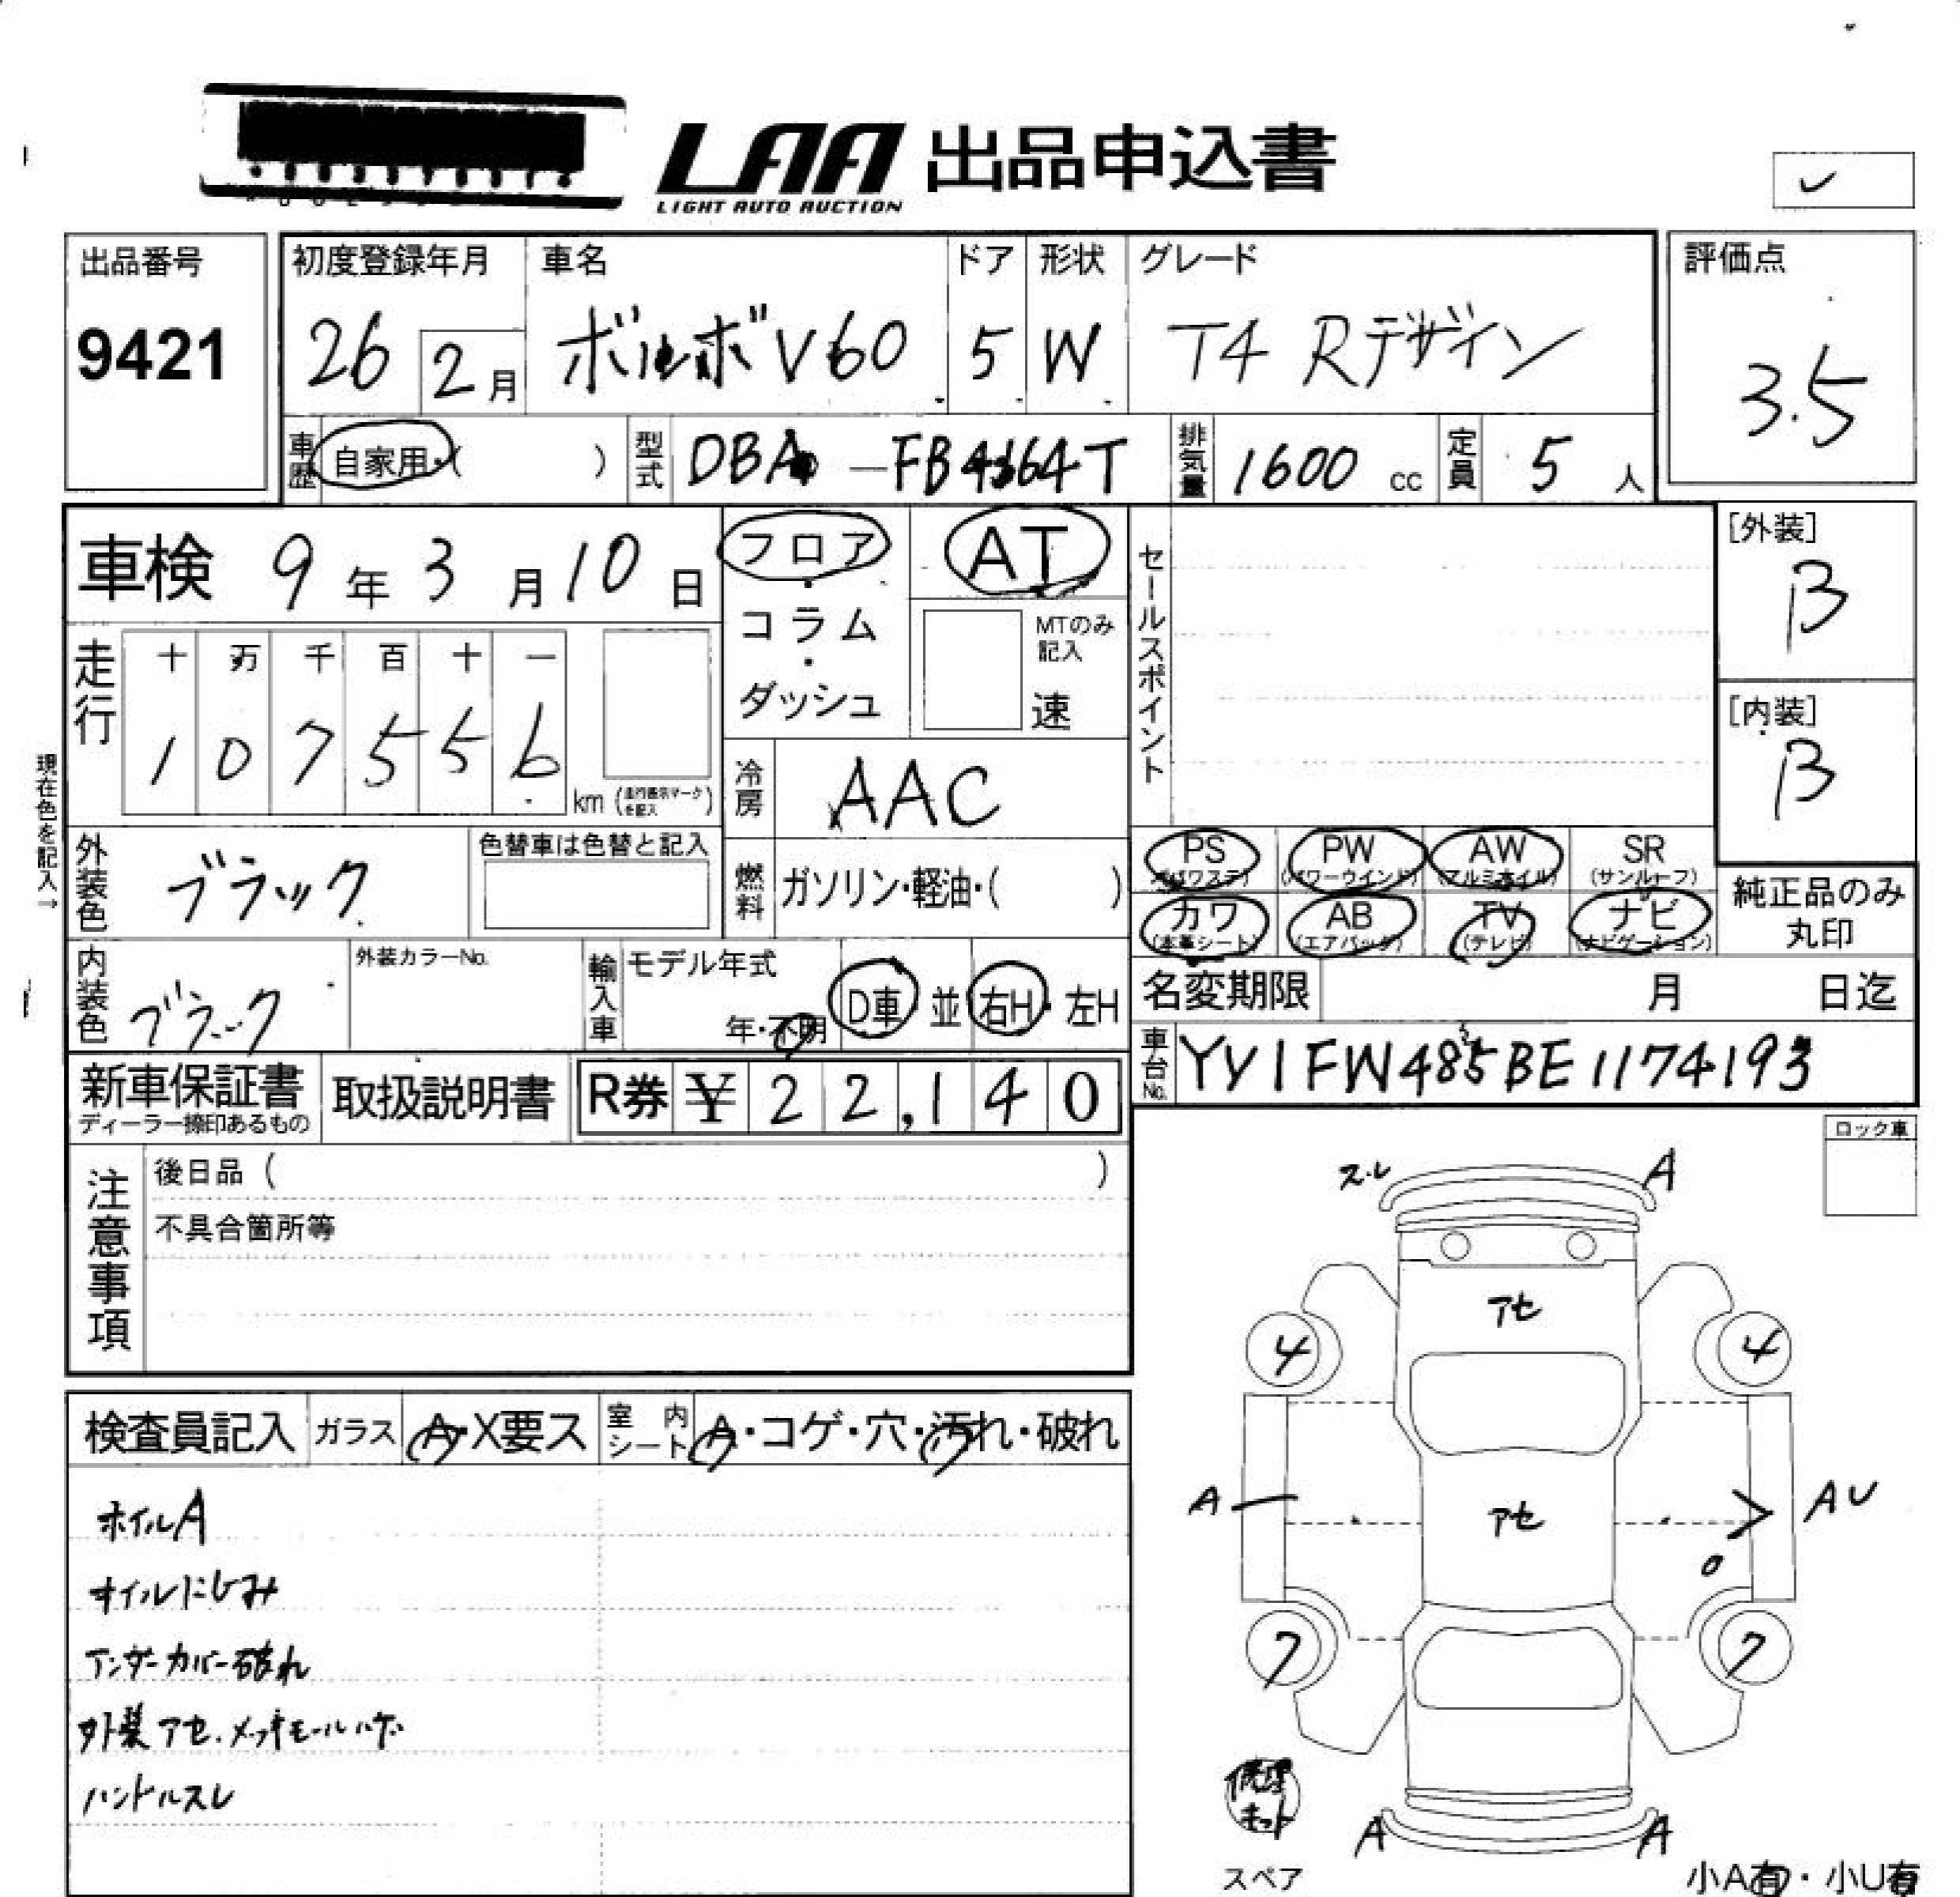 LAA 出品申込書
LIGHT AUTO AUCTION
出品番号
9421
初度登録年月
26 2月
車名
ボルボV60
ドア
5
形状
W
グレード
T4 Rデザイン
評価点
3.5
車歴 自家用・( )
型式 DBA-FB4164T
排気量 1600 cc
定員 5 人
車検 9年3月10日
フロア・コラム・ダッシュ
AT
MTのみ記入
速
セールスポイント
[外装]
B
[内装]
B
走行
十 万 千 百 十 一
1 0 7 5 5 6
km (走行表示マークを記入)
冷房 AAC
現在色を記入→
外装色 ブラック
色替車は色替と記入
燃料 ガソリン・軽油・( )
PS (パワステ)
PW (パワーウインド)
AW (アルミホイル)
SR (サンルーフ)
カワ (本革シート)
AB (エアバッグ)
TV (テレビ)
ナビ (ナビゲーション)
純正品のみ
丸印
内装色 ブラック
外装カラーNo.
輸入車 モデル年式
年・不明
D車 並 右H・左H
名変期限 月 日迄
車台No. YV1FW485BE1174193
新車保証書
ディーラー捺印あるもの
取扱説明書
R券 ¥ 22,140
注意事項
後日品 ( )
不具合箇所等
ロック車
スレ A
アセ
4 4
A アセ AU
7 7
修理キット
スペア
A A
小A有・小U有
検査員記入
ガラス A・X要ス
室内シート A・コゲ・穴・汚れ・破れ
ホイルA
オイルにじみ
アンダーカバー破れ
外装アセ.メッキモールハゲ
ハンドルスレ